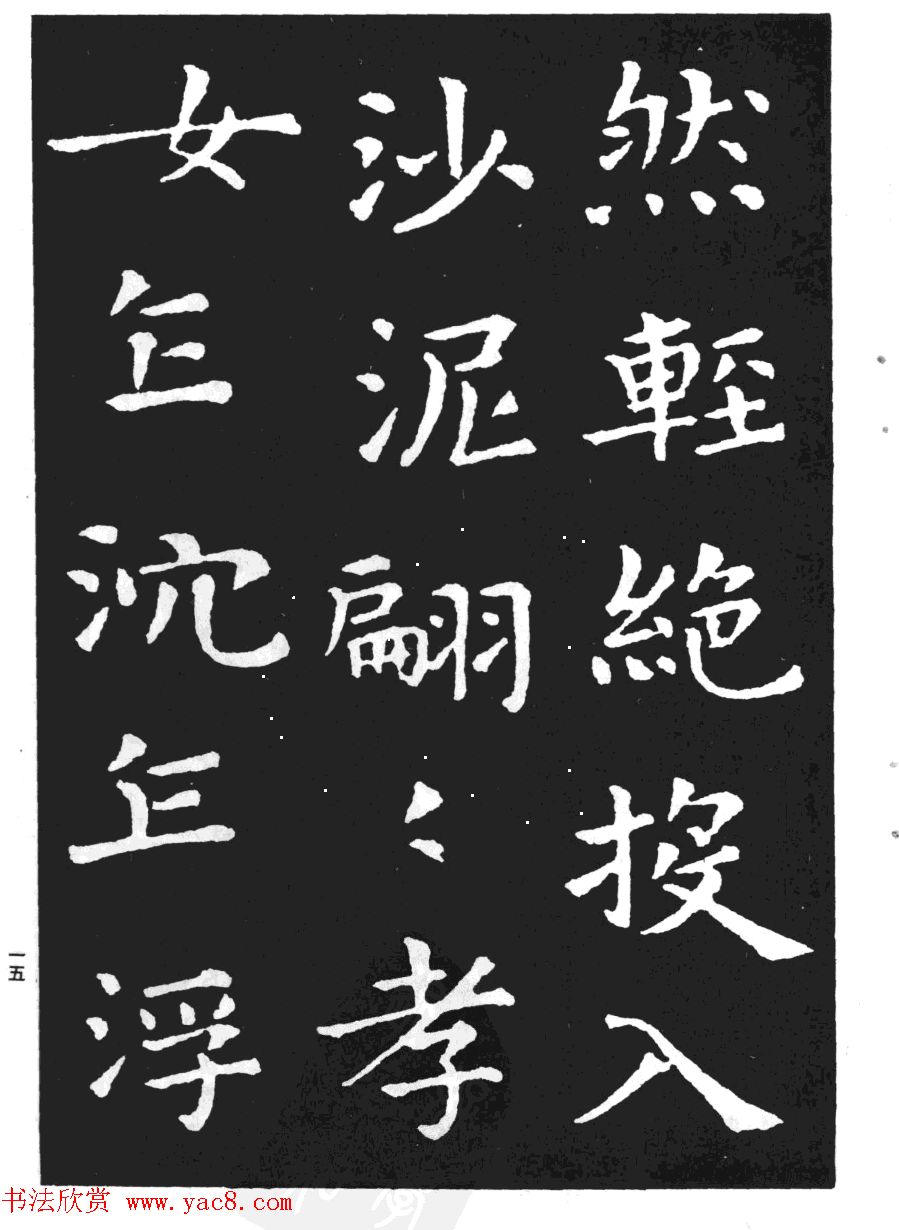 然輕絕投入
沙泥翩〻孝
女乍沈乍浮
一五
书法欣赏 www.yac8.com